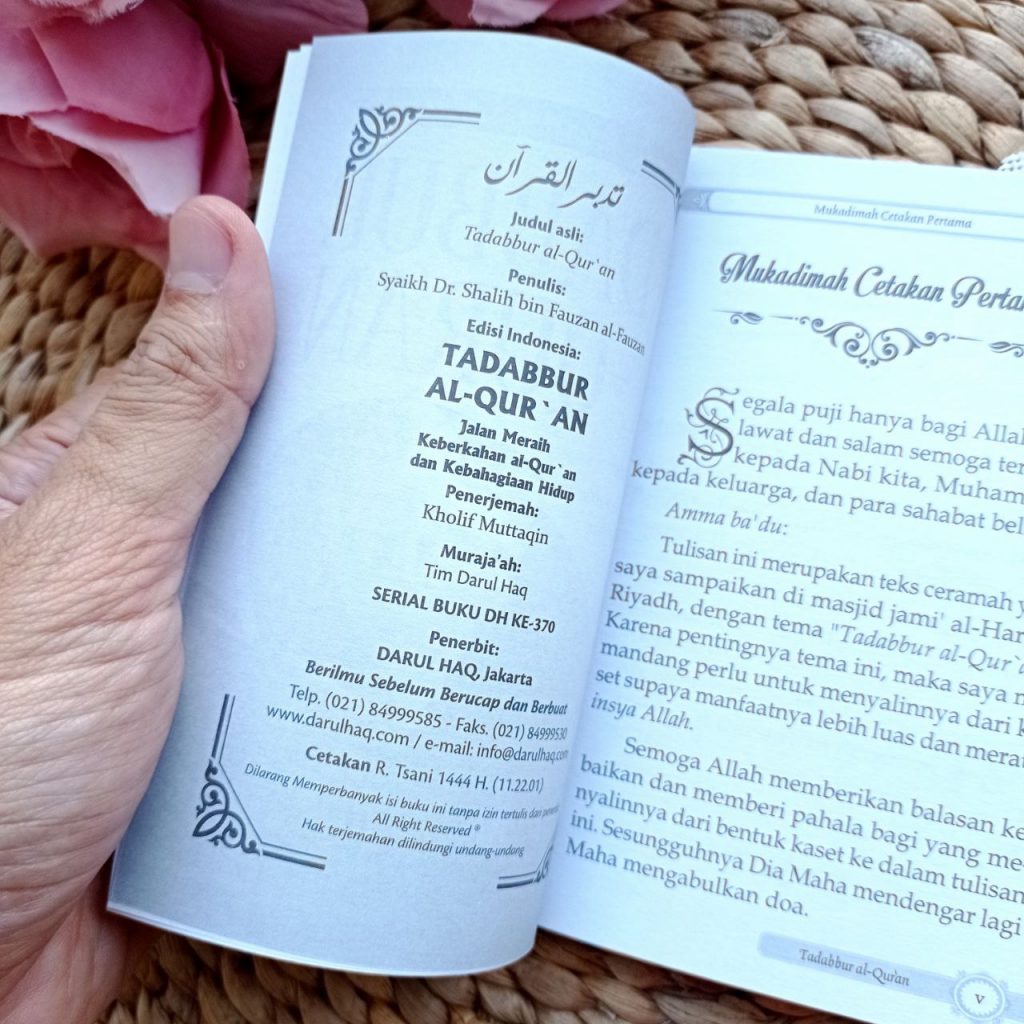 تدبر القرآن
Judul asli:
Tadabbur al-Qur`an
Penulis:
Syaikh Dr. Shalih bin Fauzan al-Fauzan
Edisi Indonesia:
TADABBUR
AL-QUR`AN
Jalan Meraih
Keberkahan al-Qur`an
dan Kebahagiaan Hidup
Penerjemah:
Kholif Muttaqin
Muraja'ah:
Tim Darul Haq
SERIAL BUKU DH KE-370
Penerbit:
DARUL HAQ, Jakarta
Berilmu Sebelum Berucap dan Berbuat
Telp. (021) 84999585 - Faks. (021) 84999530
www.darulhaq.com / e-mail: info@darulhaq.com
Cetakan R. Tsani 1444 H. (11.22.01)
Dilarang Memperbanyak isi buku ini tanpa izin tertulis dari
All Right Reserved ®
Hak terjemahan dilindungi undang-undang
Mukadimah Cetakan Pertama
Mukadimah Cetakan Perta
Segala puji hanya bagi Allah
lawat dan salam semoga ter
kepada Nabi kita, Muham
kepada keluarga, dan para sahabat bel
Amma ba'du:
Tulisan ini merupakan teks ceramah y
saya sampaikan di masjid jami' al-Har
Riyadh, dengan tema "Tadabbur al-Qur`a
Karena pentingnya tema ini, maka saya m
mandang perlu untuk menyalinnya dari k
set supaya manfaatnya lebih luas dan merat
insya Allah.
Semoga Allah memberikan balasan ke
baikan dan memberi pahala bagi yang me
nyalinnya dari bentuk kaset ke dalam tulisan
ini. Sesungguhnya Dia Maha mendengar lagi
Maha mengabulkan doa.
Tadabbur al-Qur'an
v